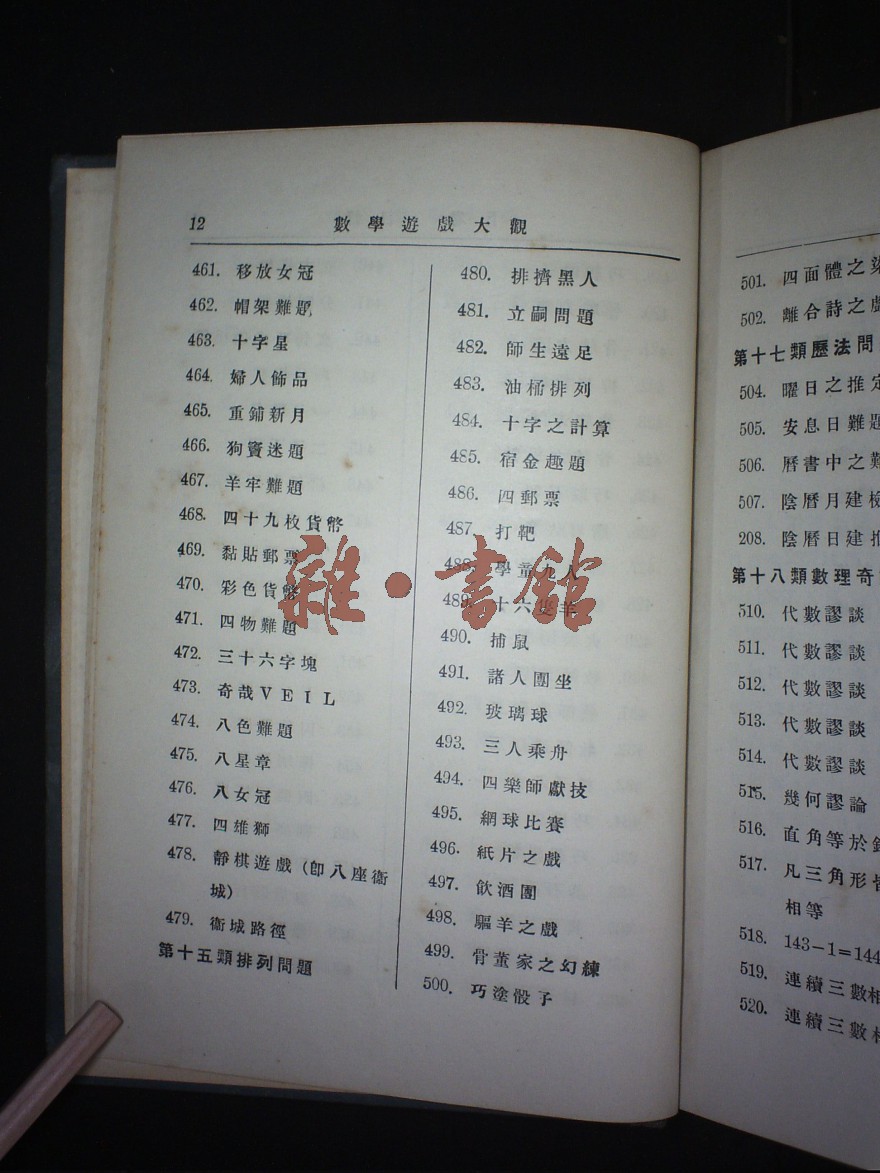 12
數學遊戲大觀
461. 移放女冠
462. 帽架難題
463. 十字星
464. 婦人飾品
465. 重鋪新月
466. 狗竇迷題
467. 羊牢難題
468. 四十九枚貨幣
469. 黏貼郵票
470. 彩色貨幣
471. 四物難題
472. 三十六字塊
473. 奇哉VEIL
474. 八色難題
475. 八星章
476. 八女冠
477. 四雄獅
478. 靜棋遊戲(即八座衞
城)
479. 衞城路徑
第十五類排列問題
480. 排擠黑人
481. 立嗣問題
482. 師生遠足
483. 油桶排列
484. 十字之計算
485. 宿金趣題
486. 四郵票
487. 打靶
488. 學童九人
489. 十六隻羊
490. 捕鼠
491. 諸人團坐
492. 玻璃球
493. 三人乘舟
494. 四樂師獻技
495. 網球比賽
496. 紙片之戲
497. 飲酒團
498. 驅羊之戲
499. 骨董家之幻練
500. 巧塗骰子
雜·書館
501. 四面體之染
502. 離合詩之戲
第十七類曆法問
504. 曜日之推定
505. 安息日難題
506. 曆書中之難
507. 陰曆月建檢
208. 陰曆日建推
第十八類數理奇
510. 代數謬談
511. 代數謬談
512. 代數謬談
513. 代數謬談
514. 代數謬談
515. 幾何謬論
516. 直角等於鈍
517. 凡三角形皆
相等
518. 143-1=144
519. 連續三數相
520. 連續三數